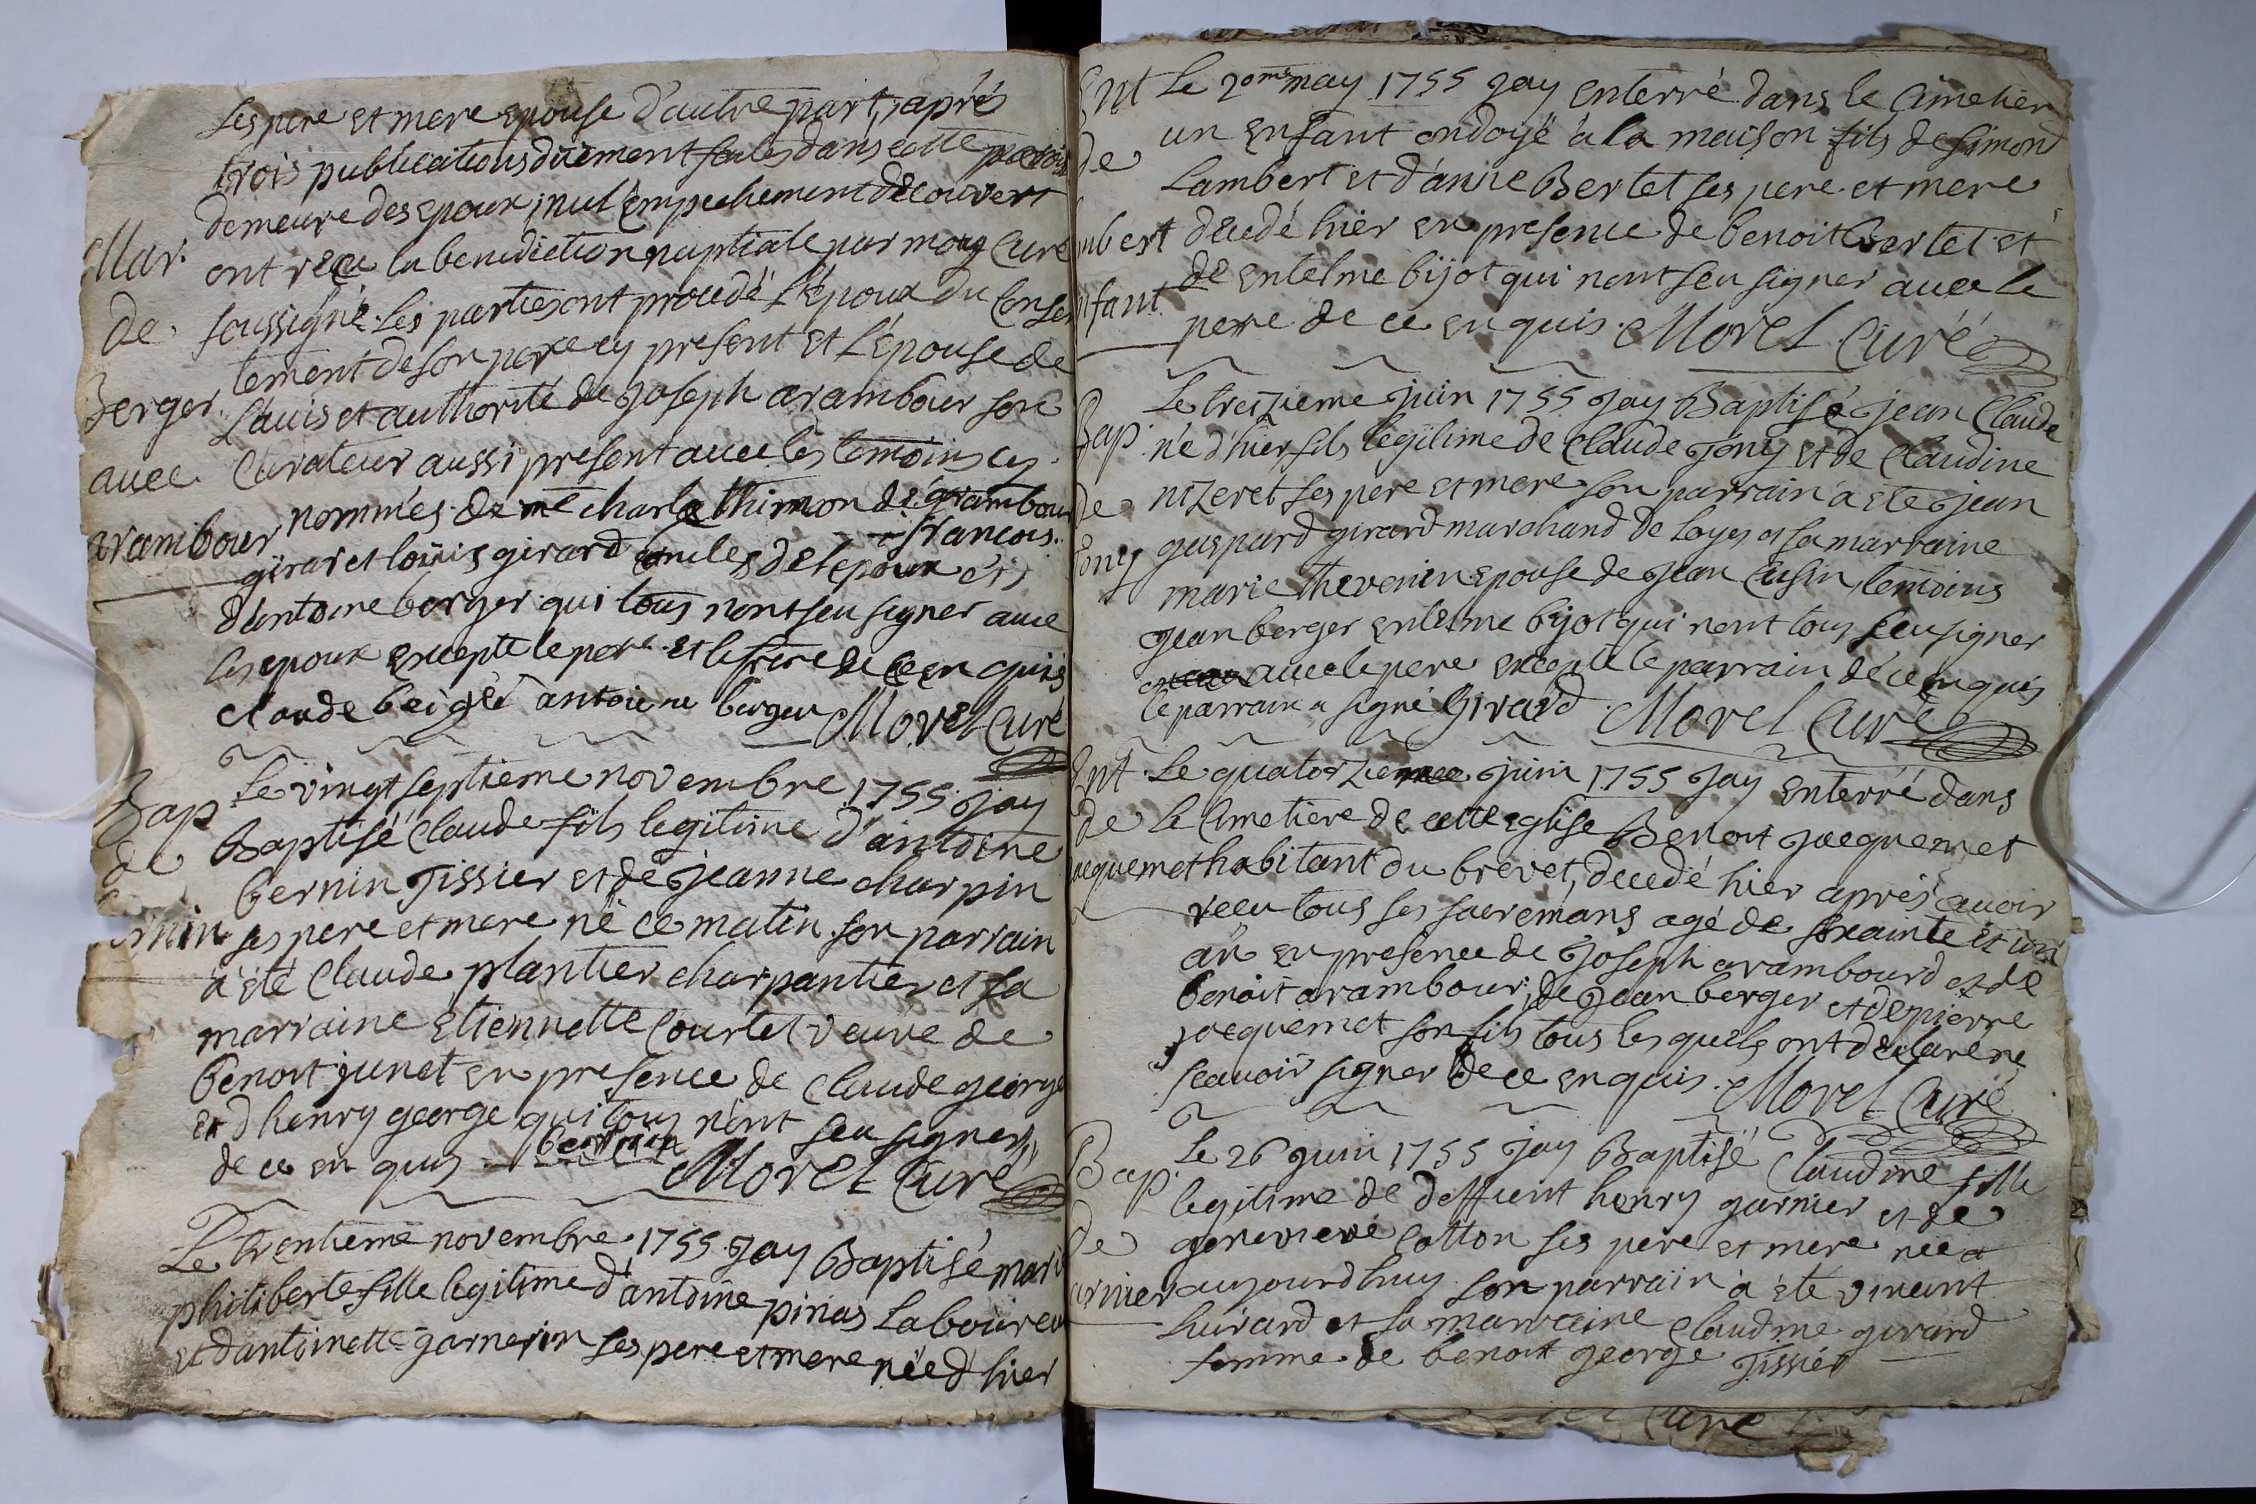 ses pere et mere epouse d'autre part, aprés
trois publications düement faites dans cette parois
demeure des epoux, nul empechement decouvert
Mar. ont reçu la benediction nuptiale par moy Curé
de soussigné. les parties ont procedé l'époux du Consen
tement de son pere cy present et l'épouse de
Berger l'avis et authorité de joseph arambour son
avec Curateur aussi present avec les temoins cy
arambour nommés. de me charle thimon de arambour
françois
girar et loüis girard oncles de l'epoux et
d'antoine berger qui tous n'ont seu signer avec
les epoux excepté le pere et le frere de ce enquis
Claude beigié antoine berger Morel Curé
Bap Le vingt septieme novembre 1755 jay
de Baptisé Claude fils legitime d'antoine
bernin Tissier et de jeanne charpin
rnin ses pere et mere né ce matin. son parrain
à été Claude plantier charpantier et sa
marraine Etiennette Courtet veuve de
benoit junet en presence de Claude george
et d'henry george qui tous n'ont seu signer
de ce enquis bernin Morel Curé
Le trentieme novembre 1755 Jay Baptisé mari
philiberte fille legitime d'antoine pinas Laboureu
et d'antoinette garnerin ses pere et mere née d'hier
Ent Le 2ome may 1755 jay enterré dans le Cimetier
de un enfant ondoyé à la maison fils de simond
Lambert et d'anne Bertet ses pere et mere
mbert decedé hier en presence de benoit Bertet et
de entelme bijot qui n'ont seu signer avec le
nfant pere de ce enquis. Morel Curé
Le treizieme juin 1755 jay Baptisé jean Claude
Bap. né d'hier fils legitime de Claude jony et de Claudine
de nizeret ses pere et mere son parrain à été jean
jony gaspard girard marchand de Loyes et sa marraine
marie thevenin epouse de jean Cusin, temoins
jean berger entelme bijot qui n'ont tous seu signer
avec le pere excepté le parrain de ce enquis
le parrain a signé Girard Morel Curé
Ent. Le quatorzieme juin 1755 Jay enterré dans
de le Cimetiere de cette eglise Benoit jacquemet
acquemet habitant du brevet, decedé hier aprés avoir
reçu tous ses sacremans agé de soixante et un
an en presence de joseph arambourd et de
benoit arambour, de jean berger et de pierre
jacquemet son fils tous les quels ont declaré ne
scavoir signer de ce enquis. Morel Curé
Bap. Le 26 juin 1755 jay Baptisé Claudine fille
legitime de deffunt henry garnier et de
de genevieve Cotton ses pere et mere née
arnier aujourdhuy son parrain à été vincent
huirard et sa marraine Claudine girard
femme de benoit george Tissier
Curé